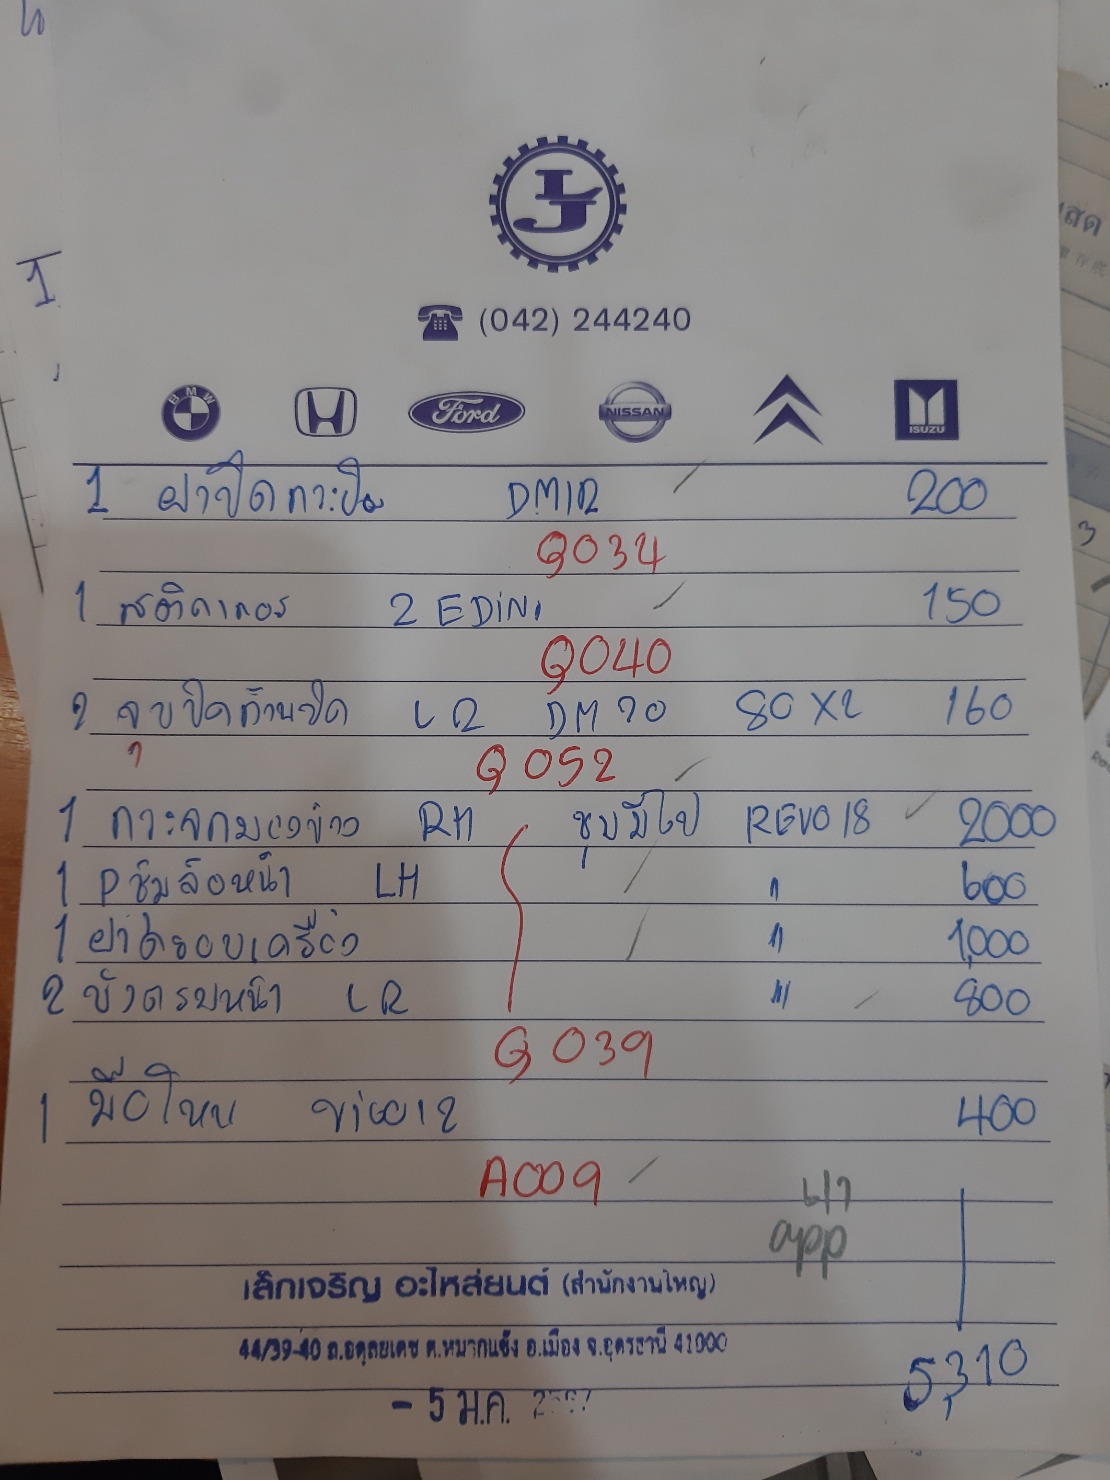 (042) 244240
BMW Ford NISSAN ISUZU
1 ฝาปิดกระปุก DM12 200
Q034
1 สติกเกอร์ 2 EDiNi 150
Q040
2 จุบปิดก้านปัด LR DM90 80X2 160
Q052
1 กระจกมองข้าง RH ชุบมีไฟ REVO18 2000
1 Pซุ้มล้อหน้า LH " 600
1 ฝาครอบเครื่อง " 1,000
2 บังตรมหน้า LR " 800
Q039
1 มือโหน 400
A009
app
เล็กเจริญ อะไหล่ยนต์ (สำนักงานใหญ่)
44/39-40 ถ.อดุลยเดช ต.หมากแข้ง อ.เมือง จ.อุดรธานี 41000
5,310
- 5 ม.ค. 2567